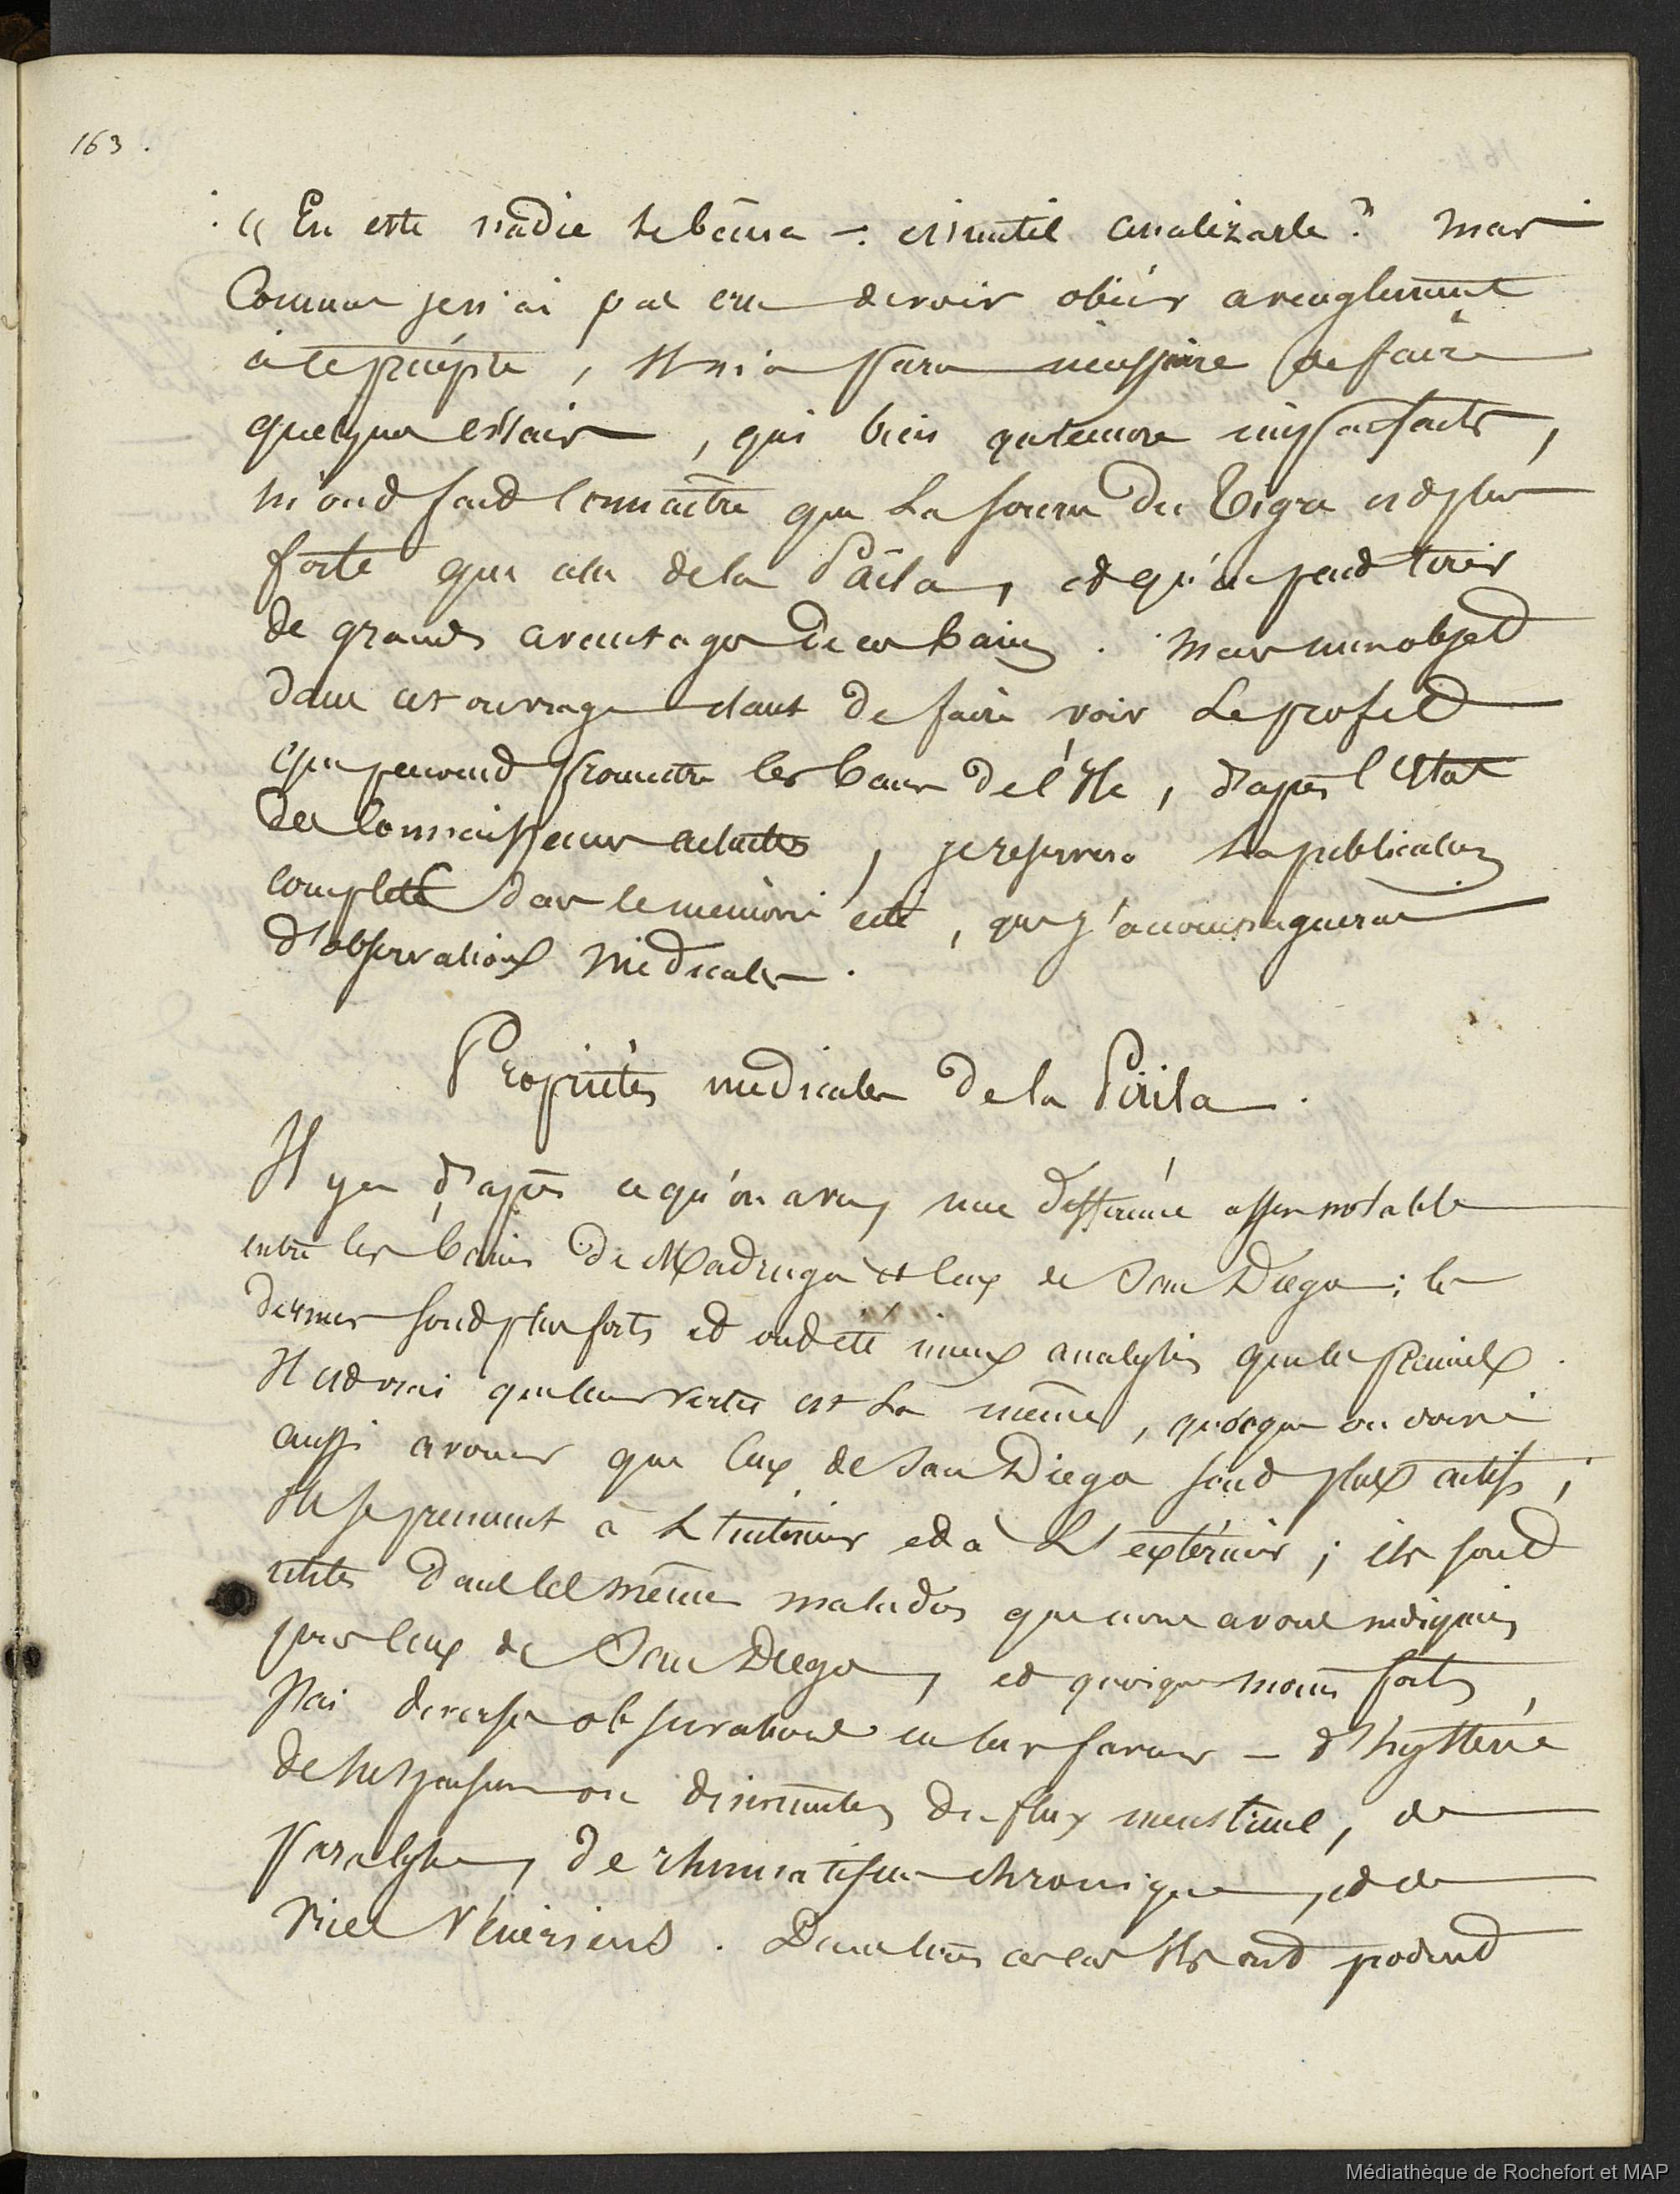 163.
« En este nadie se baña – es inutil analizarle » mais
Comme je n'ai pas cru devoir obéir aveuglement
à ce précépte, Il m'a paru nécessaire de faire
quelques essais, qui bien qu'encore imparfaits,
m'ond fait connaître que La source du Tigre est plus
forte que celle de la Paila, et qu'on peud tirer
de grands avantages de ces bains. Mais mon objet
dans cet ouvrage étant de faire voir Le profit
que peuvend promettre les bains de l'Ile, d'après l'état
des connaissances actuelles, je reserverai La publication
complete dans le mémoire cité, que j'accompagnerai
d'observations médicales.
Propriétés médicales de la Paila.
Il y a d'après ce qu'on a vu, une différence assez notable
entre les bains de Madruga et ceux de San Diego; les
derniers sond plus forts et ond été mieux analysés que les premiers.
Il est vrai que leur vertu est La même, quoique on doive
aussi avouer que ceux de San Diego sond plus actifs;
Ils se prennent à L'intérieur et à L'extérieur; ils sond
utiles dans les mêmes maladies que nous avons indiquées
pour ceux de San Diego, et quoique moins forts,
J'ai diverses observations en leur faveur – d'hystérie
de suspension ou diminution du flux menstruel, de
Paralysie, de rhumatisme chronique, et de
vices vénériens. Dans tous ces cas Ils ond produit
Médiathèque de Rochefort et MAP